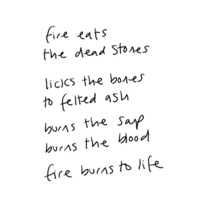 fire eats
the dead stones
licks the bones
to felted ash
burns the sap
burns the blood
fire burns to life